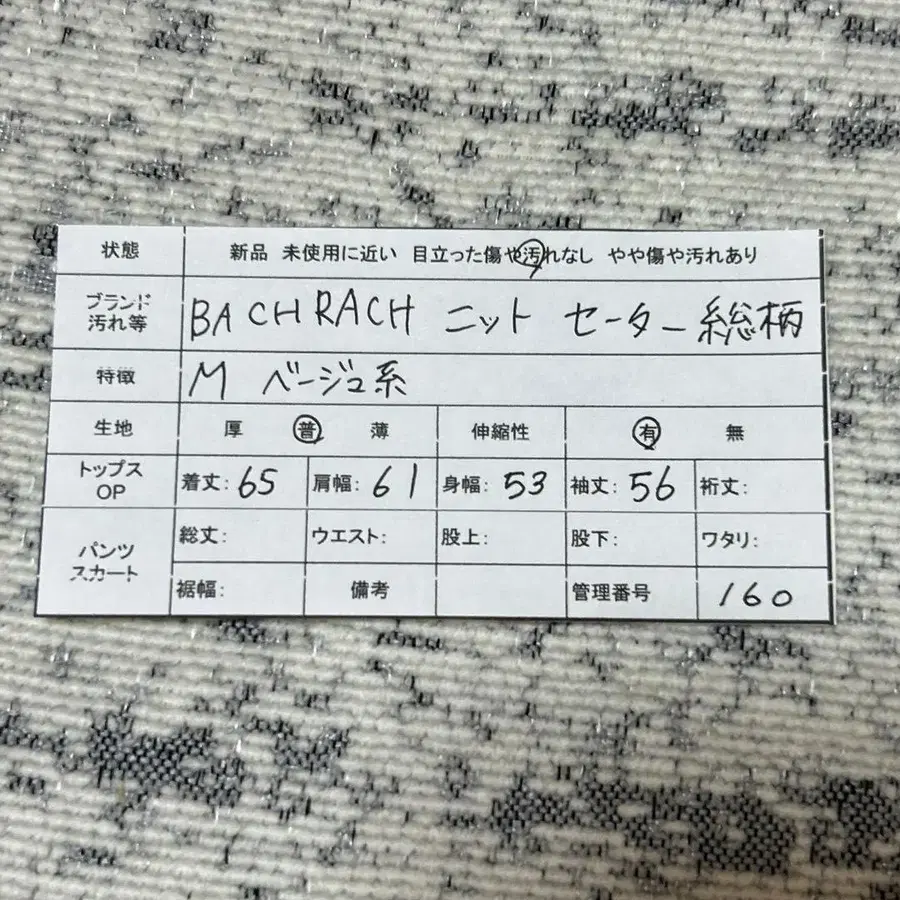 状態 新品 未使用に近い 目立った傷や汚れなし やや傷や汚れあり
ブランド
汚れ等 BACHRACH ニット セーター 総柄
特徴 M ベージュ系
生地 厚 普 薄 伸縮性 有 無
トップス
OP 着丈: 65 肩幅: 61 身幅: 53 袖丈: 56 裄丈:
パンツ
スカート 総丈: ウエスト: 股上: 股下: ワタリ:
裾幅: 備考 管理番号 160